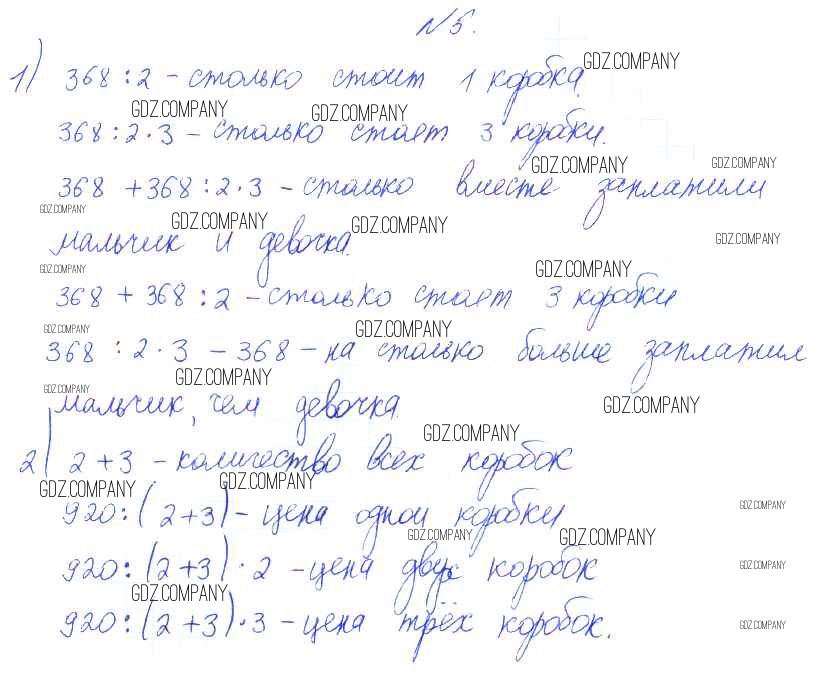 №5.
1) 368 : 2 – столько стоит 1 коробка GDZ.COMPANY
GDZ.COMPANY GDZ.COMPANY
368 : 2 · 3 – столько стоят 3 коробки.
GDZ.COMPANY GDZ.COMPANY
368 + 368 : 2 · 3 – столько вместе заплатили
GDZ.COMPANY GDZ.COMPANY GDZ.COMPANY
мальчик и девочка. GDZ.COMPANY
GDZ.COMPANY GDZ.COMPANY
368 + 368 : 2 – столько стоят 3 коробки
GDZ.COMPANY GDZ.COMPANY
368 : 2 · 3 – 368 – на столько больше заплатил
GDZ.COMPANY GDZ.COMPANY
мальчик, чем девочка. GDZ.COMPANY
GDZ.COMPANY
2) 2 + 3 – количество всех коробок
GDZ.COMPANY GDZ.COMPANY
920 : (2 + 3) – цена одной коробки GDZ.COMPANY
GDZ.COMPANY GDZ.COMPANY
920 : (2 + 3) · 2 – цена двух коробок GDZ.COMPANY
GDZ.COMPANY
920 : (2 + 3) · 3 – цена трёх коробок. GDZ.COMPANY